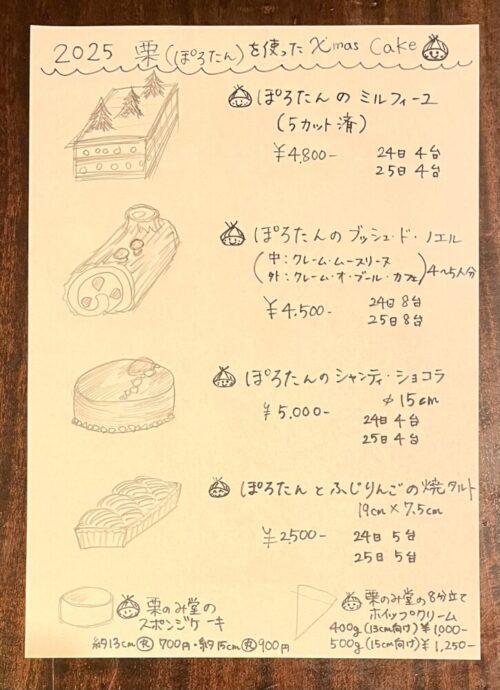 2025 栗(ぽろたん)を使った Xmas Cake
ぽろたんの ミルフィーユ
(5カット済)
¥4.800-
24日 4台
25日 4台
ぽろたんの ブッシュ・ド・ノエル
(中:クレーム・ムースリーヌ
外:クレーム・オ・ブール・カフェ) 4〜5人分
¥4.500-
24日 8台
25日 8台
ぽろたんの シャンティ・ショコラ
φ15cm
¥5.000-
24日 4台
25日 4台
ぽろたんとふじりんごの焼タルト
19cm×7.5cm
¥2500-
24日 5台
25日 5台
栗のみ堂の
スポンジケーキ
約13cm㊛ 700円・約15cm㊛ 900円
栗のみ堂の8分立て
ホイップクリーム
400g(13cm向け)¥1000-
500g(15cm向け)¥1,250-